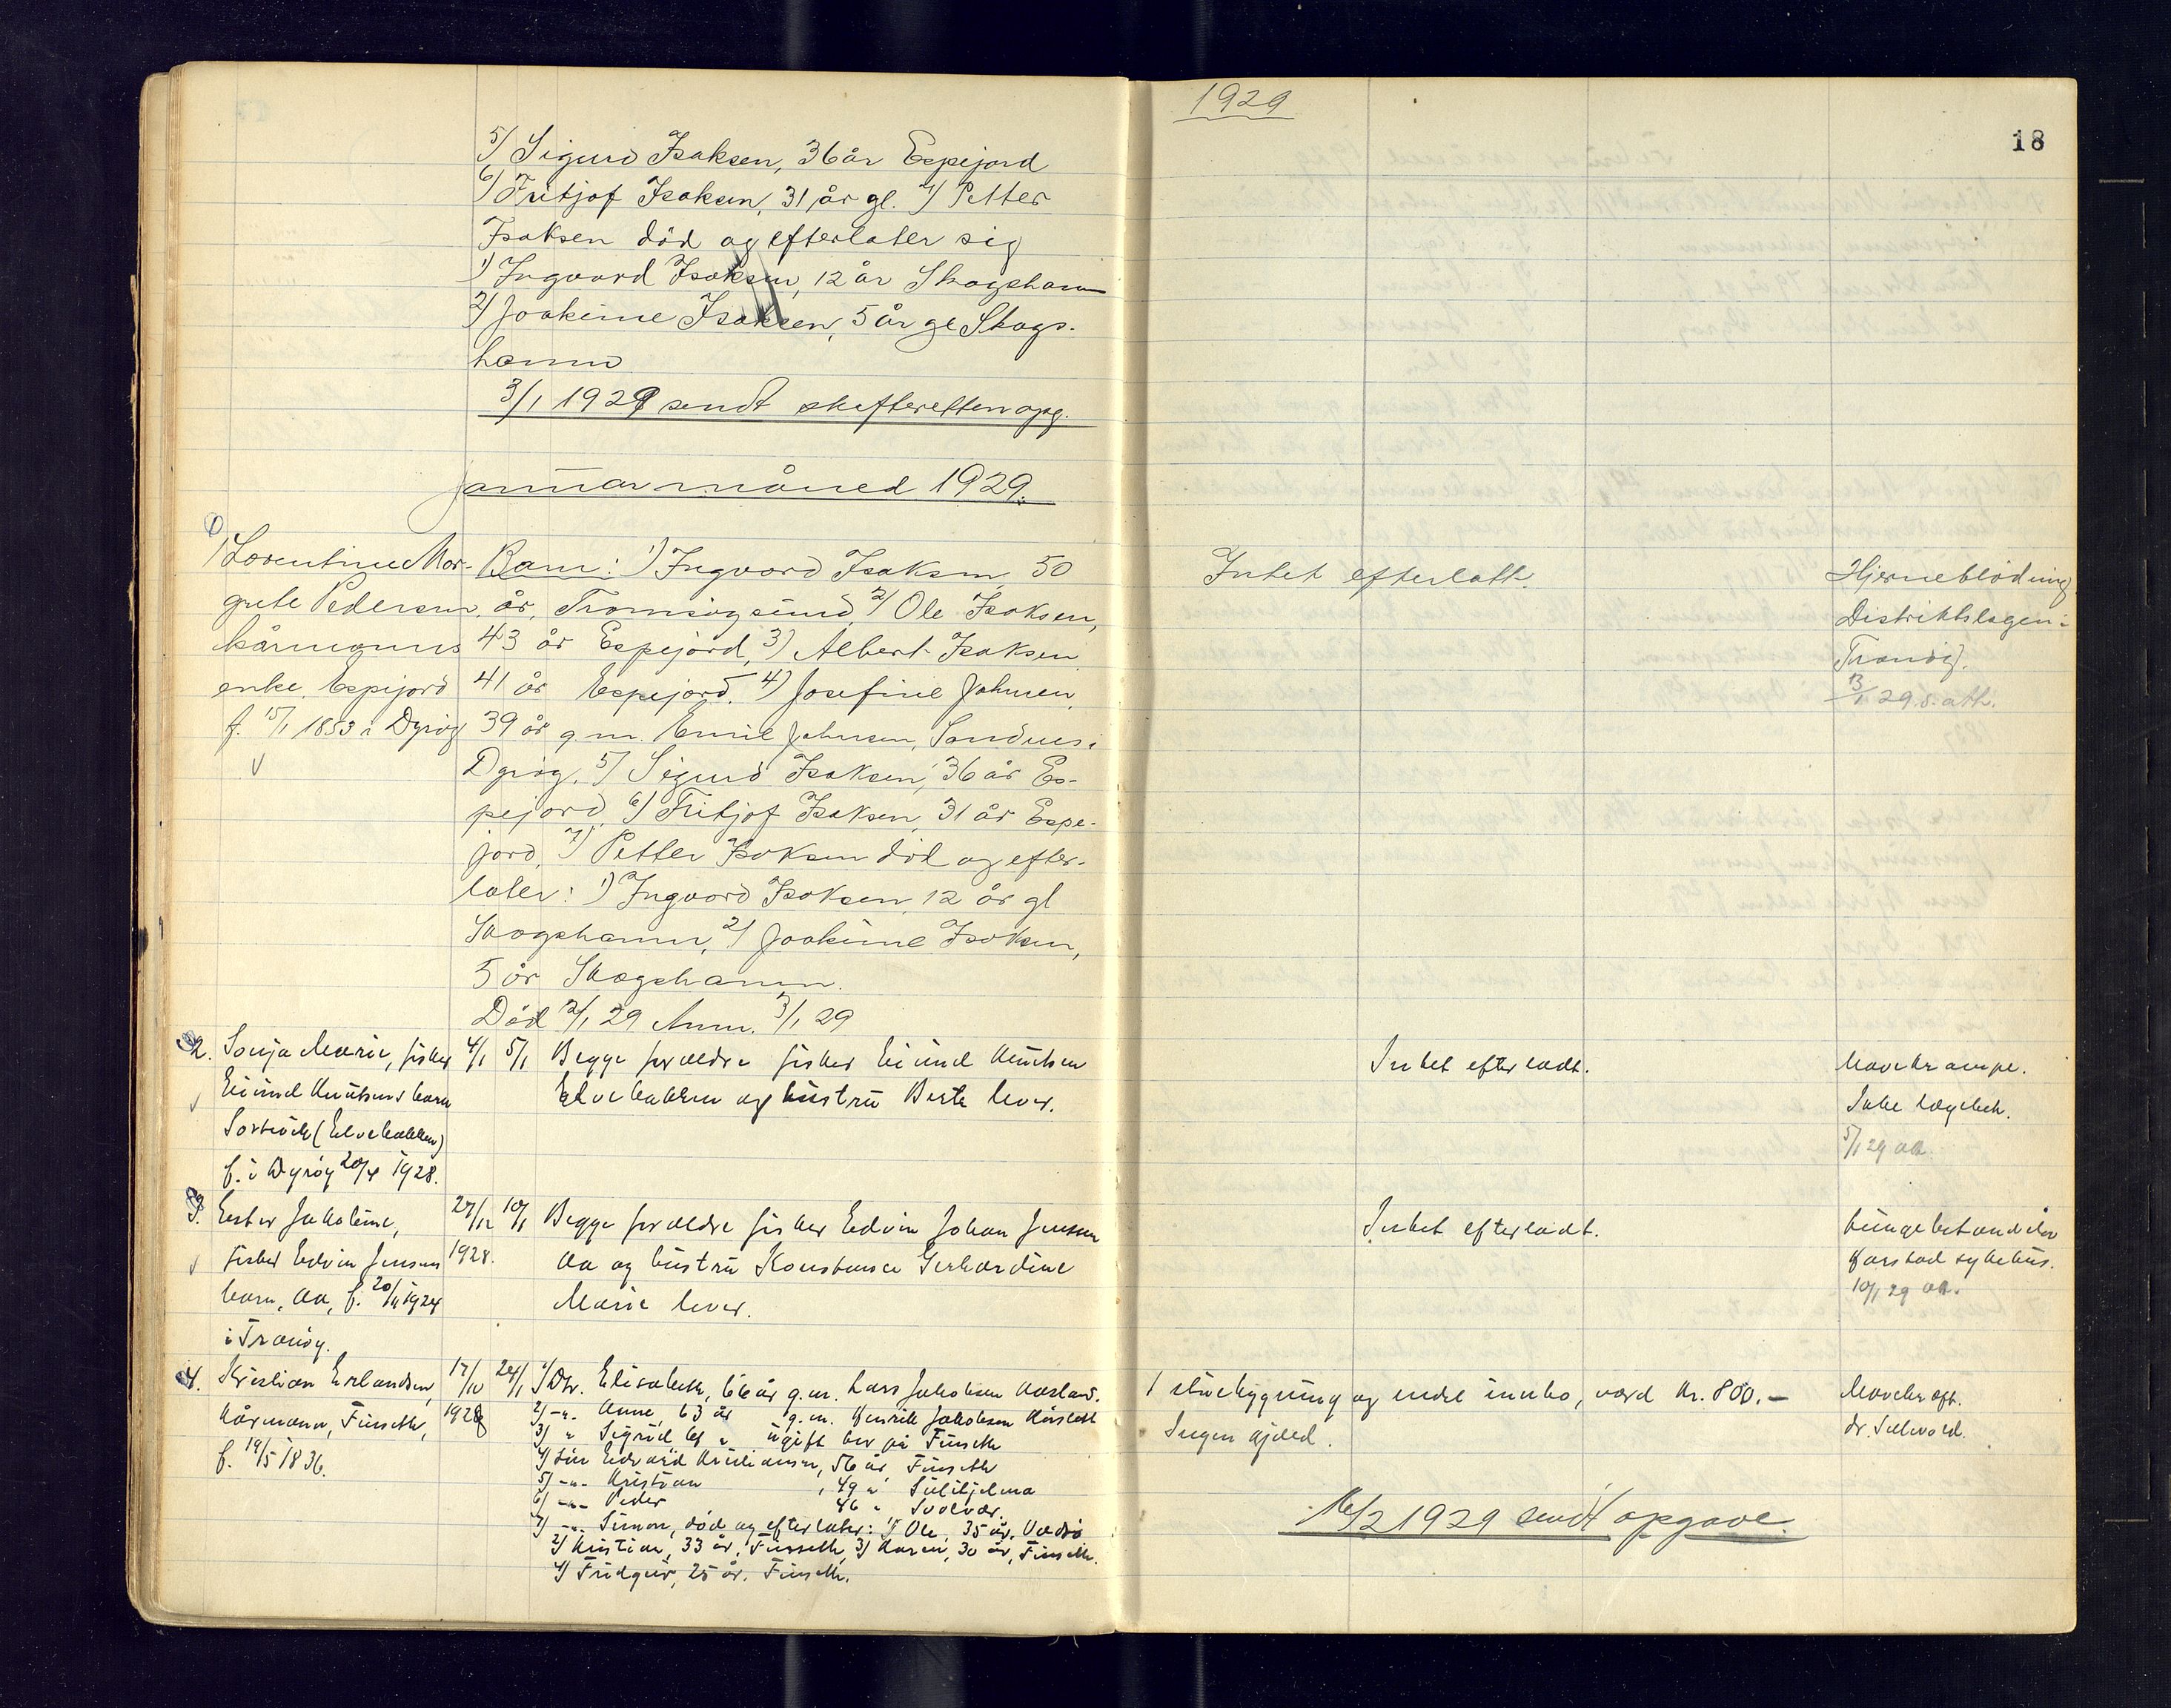 1929
18
5) Sigurd Isaksen, 36 år Espejord
6) Fritjof Isaksen, 31 år gl. 7) Petter
Isaksen död og efterlater sig
1) Ingvard Isaksen, 12 år Skogshamn
2) Joakime Isaksen, 5 år gl Skogs-
hamn
3/1 1929 sendt skifteretten opg.
Januar måned 1929.
1) Lorentine Mar-
grete Pedersen
kårmanns
enke, Espejord
f. 15/1 1853 i Dyröy
Barn: 1) Ingvard Isaksen, 50
år, Tromsöysund, 2) Ole Isaksen,
43 år Espejord, 3) Albert Isaksen
41 år Espejord. 4) Josefine Johnsen,
39 år g.m. Emil Johnsen, Sandnes i
Dyröy. 5) Sigurd Isaksen, 36 år Es-
pejord, 6) Fritjof Isaksen, 31 år Espe-
jord, 7) Petter Isaksen död og efter-
later: 1) Ingvard Isaksen, 12 år gl
Skogshamn, 2) Joakime Isaksen,
5 år Skogshamn.
Död 2/1 29 Anm. 3/1 29
Intet efterlatt.
Hjerneblödning
Distriktslægen i
Tranöy.
29. d. att.
2. Sonja Marie, fisker
Eivind Knutsens barn
(Elvebakken)
f. i Dyröy 20/4 1928.
4/1 5/1
Begge forældre fisker Eivind Knutsen
Elvebakken og hustru Berte lever.
Intet efterladt.
Mavekrampe.
Ikke lægebeh.
5/1 29 att.
3. Ester Jakobine,
fisker Edvin Jensens
barn, Aa, f. 20/11 1924
i Tranöy.
27/12 1928. 10/1
Begge forældre fisker Edvin Johan Jensen
Aa og hustru Konstanse Gerhardine
Marie lever.
Intet efterladt.
Lungebetændelse
Harstad sykehus.
10/1 29 att.
4. Kristian Erlandsen,
kårmann, Finseth,
f. 19/5 1836.
17/10 1928 24/1
1) Dtr. Elisabeth, 66 år g.m. Lars Jakobsen
2) -"- Anne, 63 år g.m. Henrik Jakobsen Kårslett
3) " Sigrid 61 " ugift bor på Finseth
4) Sön Edvard Kristiansen, 56 år, Finseth
5) -"- Kristian, 49 " Sulitjelma
6) -"- Peder 46 " Svolvær.
7) -"- Simon, död og efterlater: 1) Ole, 35 år, Vadsö
2) Kristian, 33 år, Finseth, 3) Karen, 30 år, Finseth.
4) 25 år. Finseth.
1 stuebygning og endel innbo, værd Kr. 800.-
Ingen gjeld.
Mavekræft.
dr.
16/2 1929 sendt opgave.